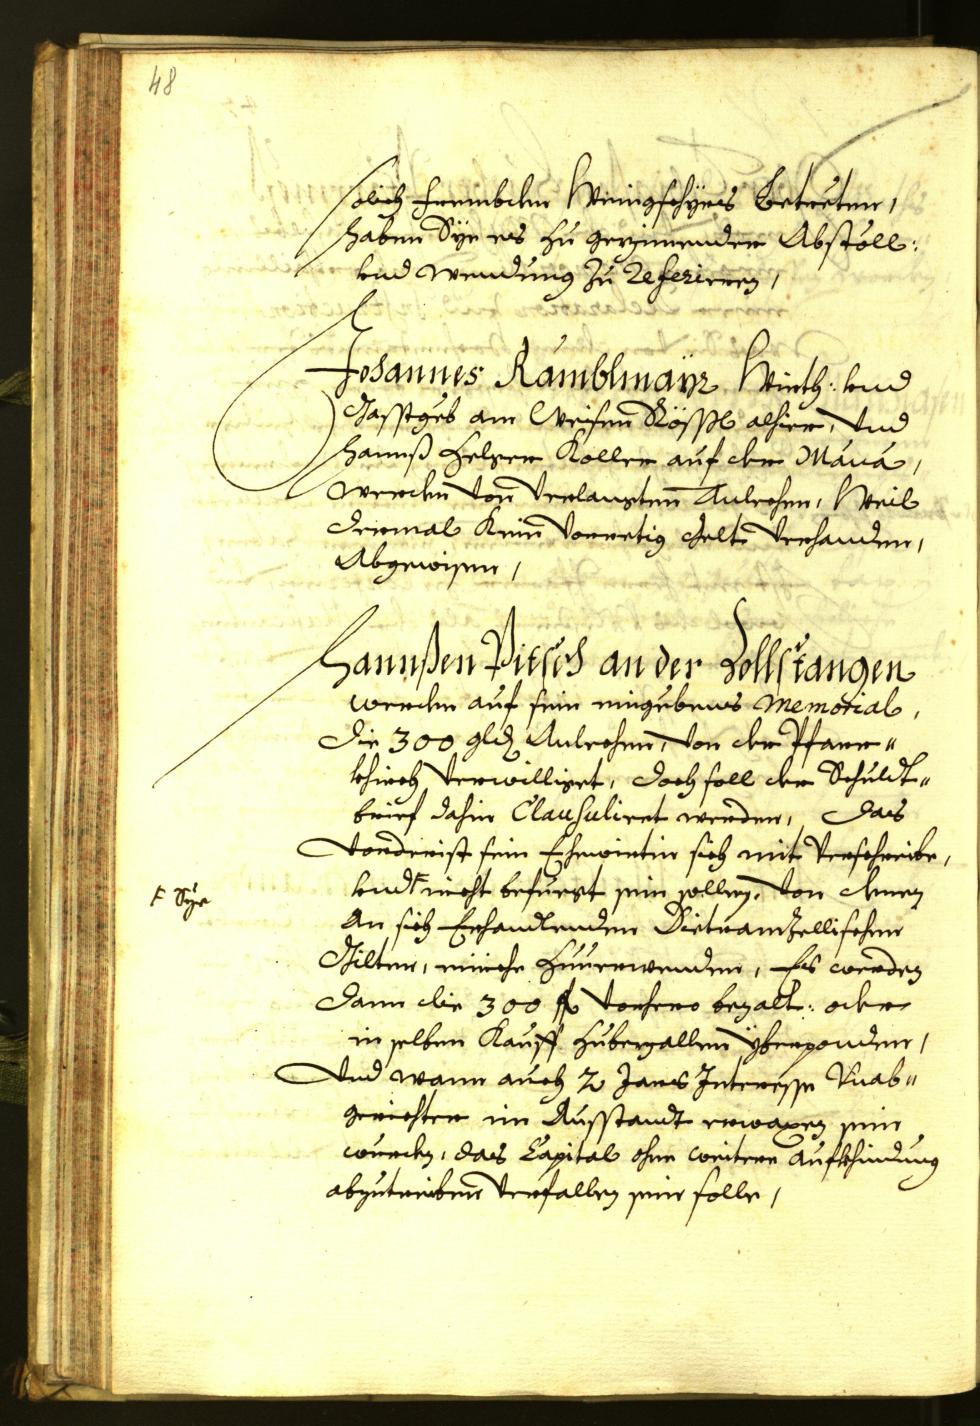 48
solich frembden Weinigschyrs betretten,
haben Sye es zu gezimmender Abstöll:
vnd wendung zu Referieren,
Johannes Ramblmayr Würth: vnd
Gasstgeb am Weisen Rössl alhier, Vnd
Hannß Holzer Koller auf der Maua,
werden von verlangten Anlechen, Weil
dermal kein vorretig gelt verhanden,
Abgewisen,
Hannßen Pitsch an der Zollstangen
werden auf sein eingebenes Memorial,
die 300 gld Anlechen, von der Pfarr"
khirch verwilliget, doch soll der Schuldt"
brief dahin Clausuliert werden, das
vorderist sein Ehewirtin sich mit verschreibe,
vnd F nicht befuegt sein sollen, von denen
F Sye
An sich Erhandlenden
Gilten, eniche zuuerwenden, Es werden
dann die 300 fl vorhero bezalt: oder
in selben Kauff
Vnd wann auch 2 Jars Interesse Vnab"
gerichter im Ausstandt erwaxen sein
wurden, das Capital ohne weitere Aufkhindung
abzutreiben verfallen sein solle,